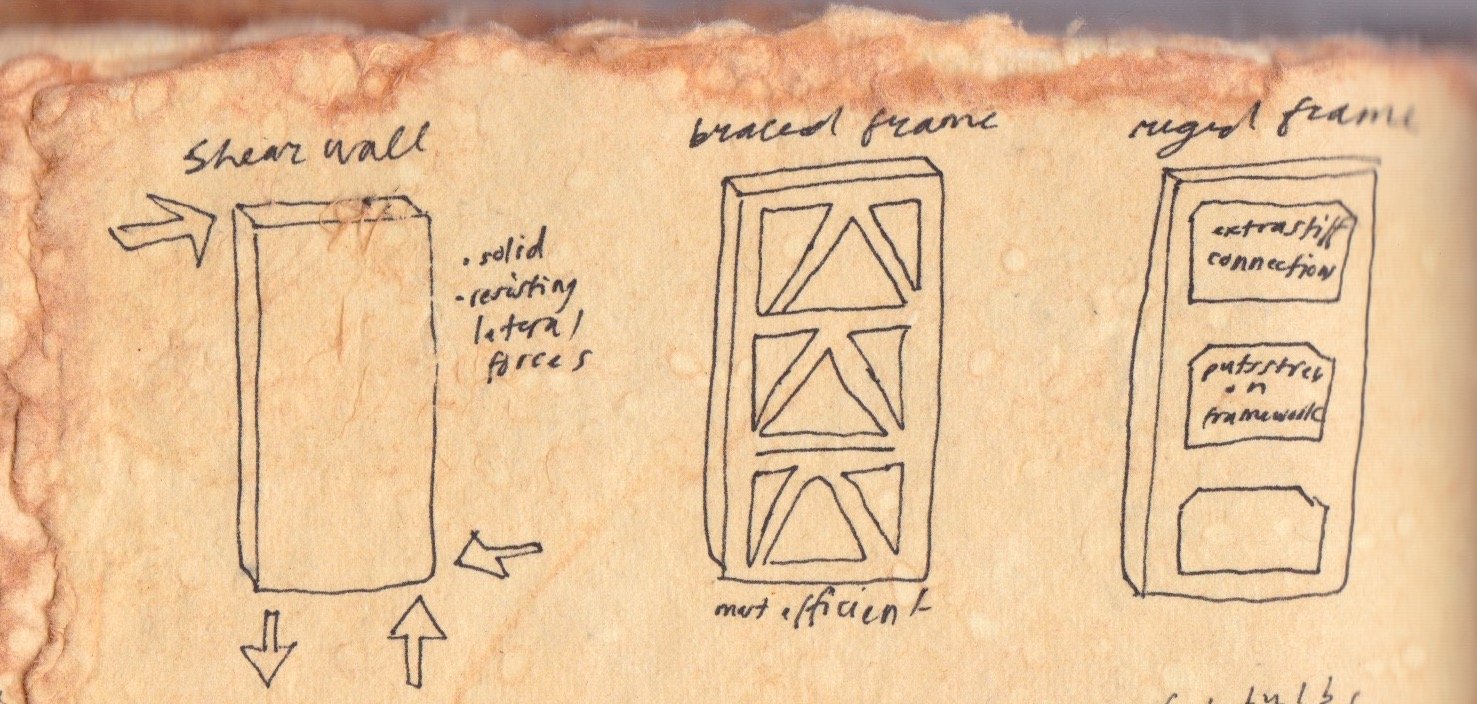 shear wall
braced frame
ruged frame
• solid
• resisting
lateral
forces
extrastiff
connection
puts stress
on
framework
most efficient